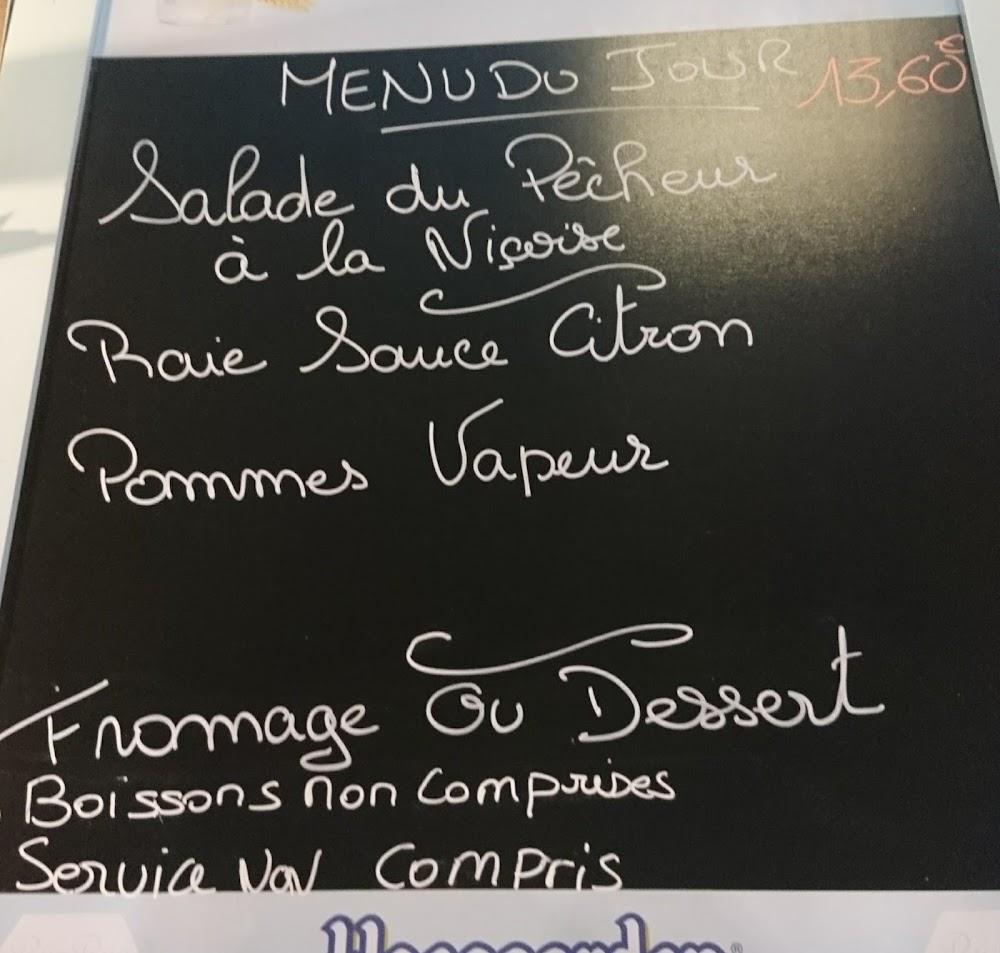 MENU DU JOUR 13,60€
Salade du Pêcheur
à la Niçoise
Raie Sauce Citron
Pommes Vapeur
Fromage Ou Dessert
Boissons non Comprises
Service Non Compris